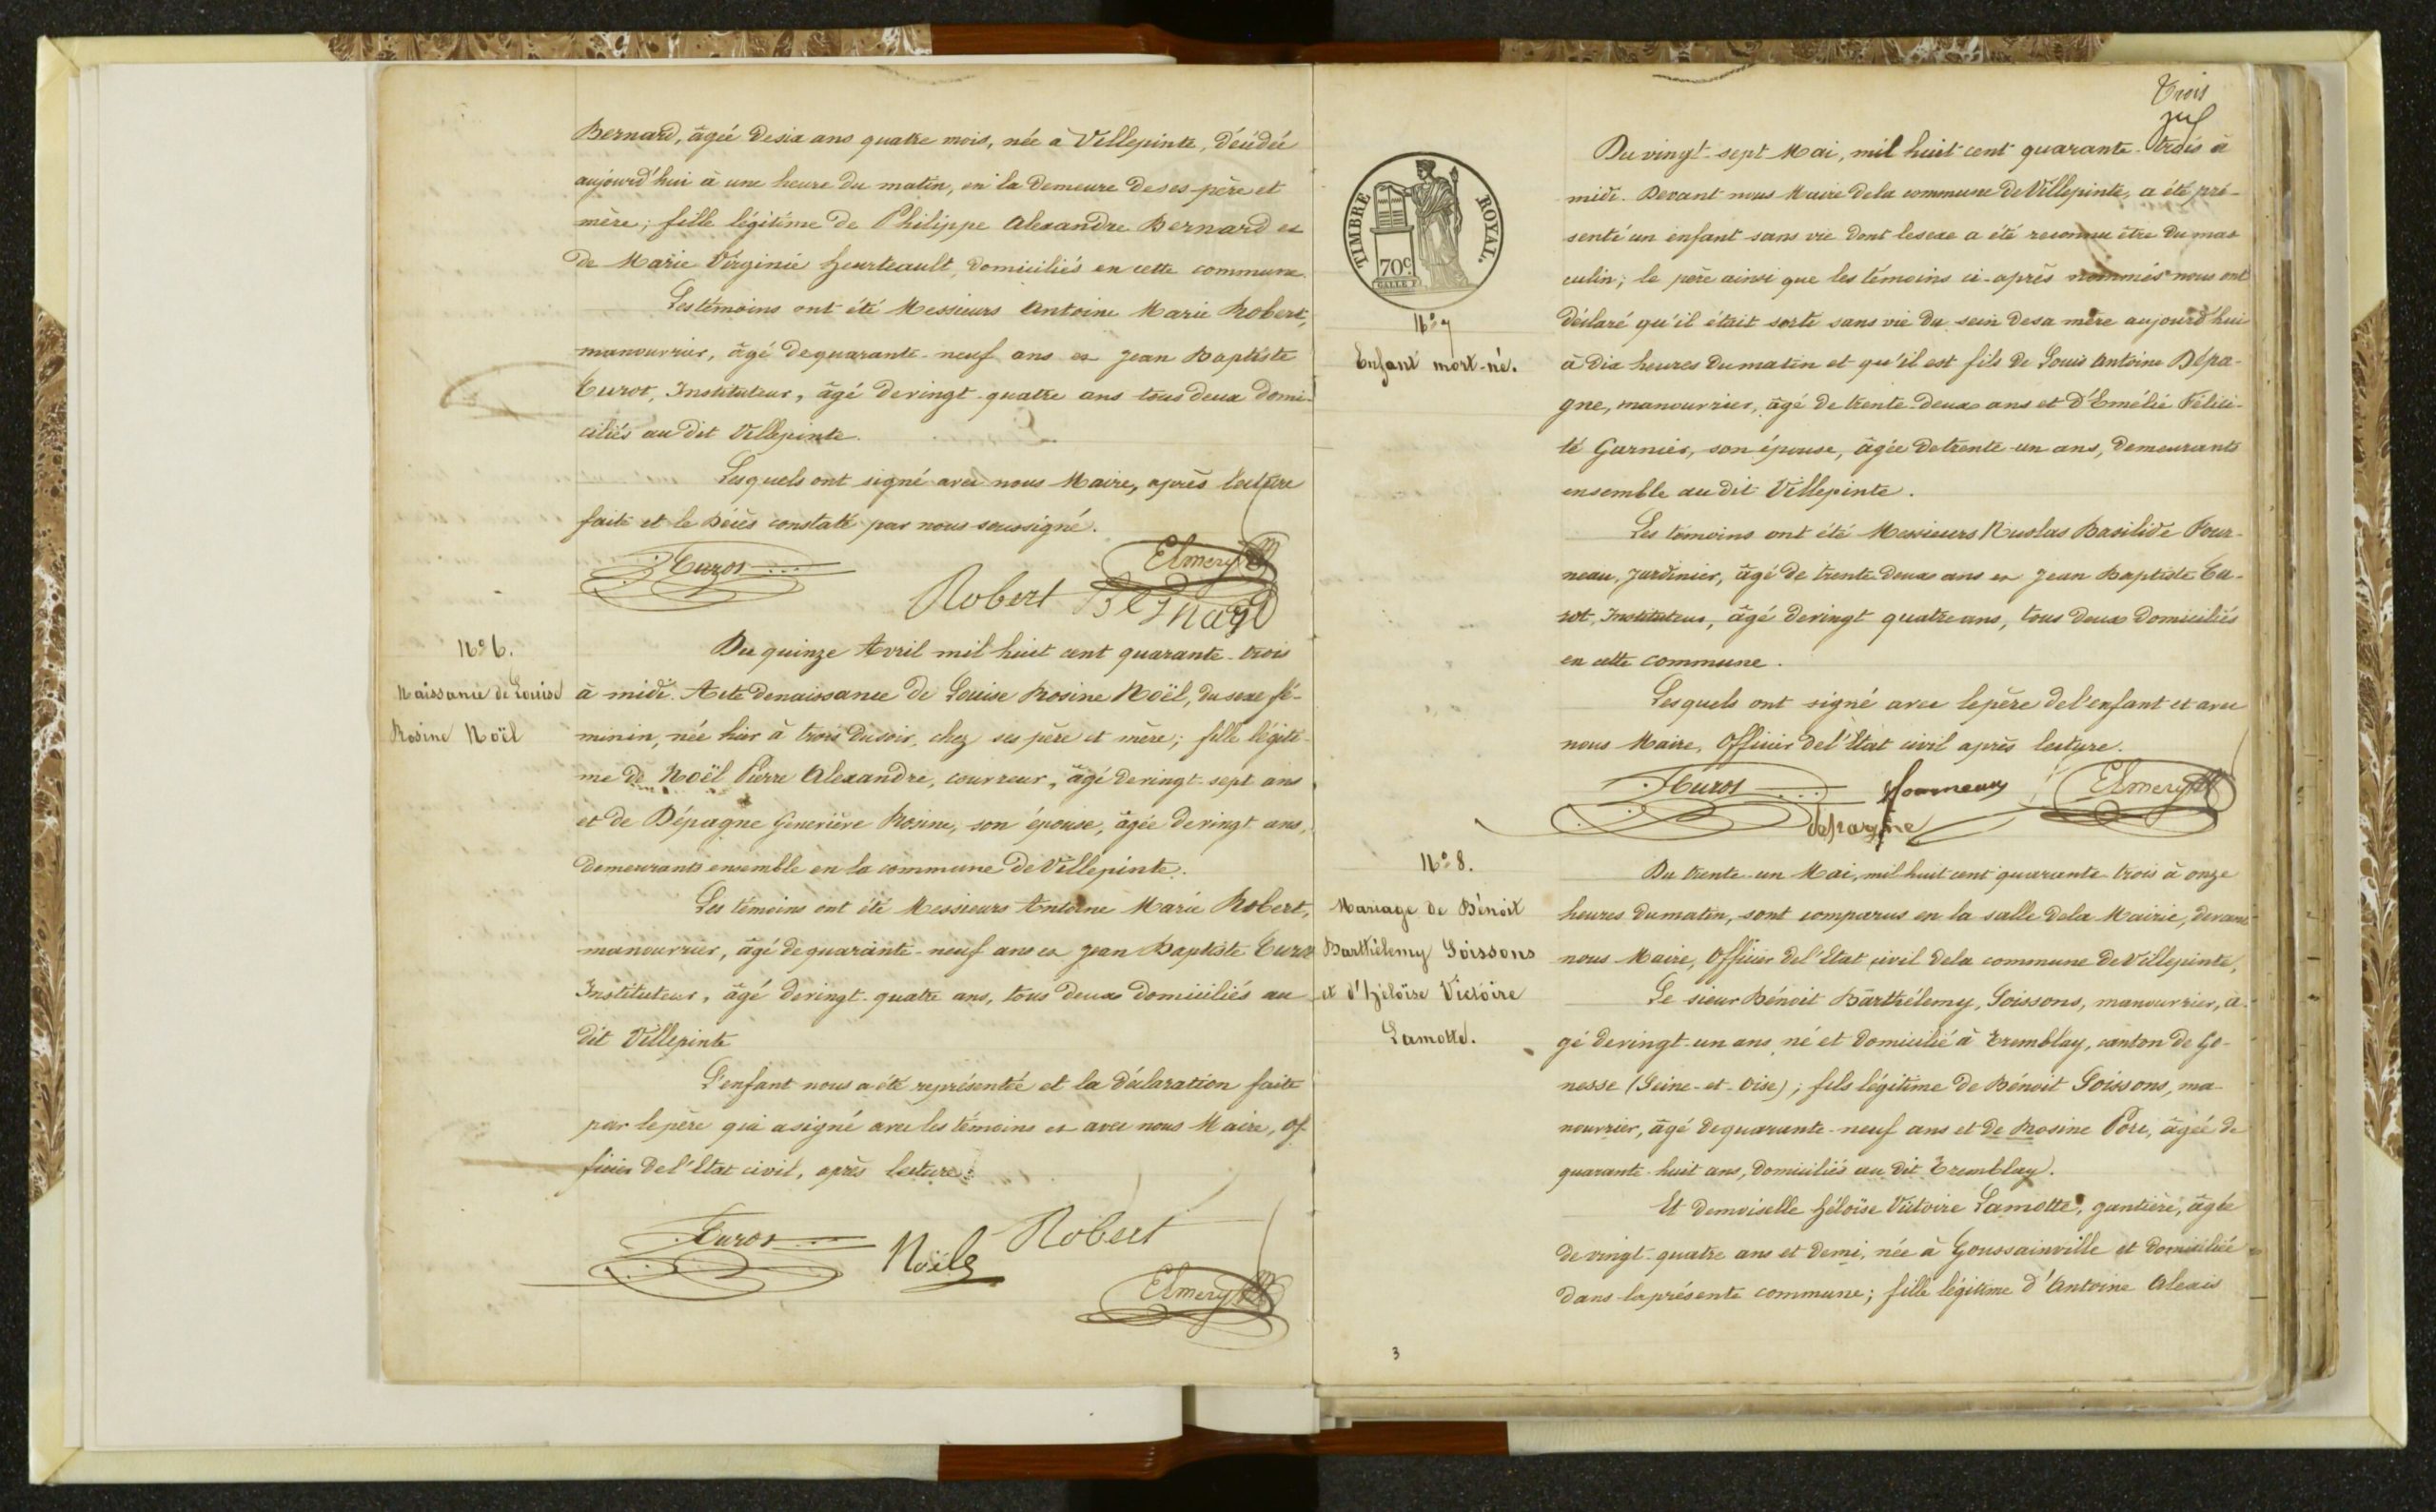 Bernard, âgée de six ans quatre mois, née à Villepinte, décédée
aujourd'hui à une heure du matin, en la demeure de ses père et
mère; fille légitime de Philippe Alexandre Bernard et
de Marie Virginie Heurteault, domiciliés en cette commune.
Les témoins ont été Messieurs Antoine Marie Robert,
manouvrier, âgé de quarante-neuf ans et Jean Baptiste
Turot, Instituteur, âgé de vingt-quatre ans tous deux domi-
ciliés au dit Villepinte.
Lesquels ont signé avec nous Maire, après lecture
faite et le décès constaté par nous soussigné.
Turot
Elmery
Robert Bernard
N° 6.
Naissance de Louise
Rosine Noël
Du quinze Avril mil huit cent quarante-trois
à midi. Acte de naissance de Louise Rosine Noël, du sexe fé-
minin, née hier à trois du soir, chez ses père et mère; fille légiti-
me de Noël Pierre Alexandre, couvreur, âgé de vingt-sept ans
et de Dépagne Geneviève Rosine, son épouse, âgée de vingt ans,
demeurants ensemble en la commune de Villepinte.
Les témoins ont été Messieurs Antoine Marie Robert,
manouvrier, âgé de quarante-neuf ans et Jean Baptiste Turot
Instituteur, âgé de vingt-quatre ans, tous deux domiciliés au
dit Villepinte
L'enfant nous a été représentée et la déclaration faite
par le père qui a signé avec les témoins et avec nous Maire, of
ficier de l'Etat civil, après lecture.
Turot Noël Robert
Elmery
Trois
TIMBRE ROYAL.
70c
N° 7
Enfant mort-né.
Du vingt-sept Mai, mil huit cent quarante-trois à
midi. Devant nous Maire de la commune de Villepinte, a été pré-
senté un enfant sans vie dont le sexe a été reconnu être du mas
culin; le père ainsi que les témoins ci-après nommés nous ont
déclaré qu'il était sorti sans vie du sein de sa mère aujourd'hui
à dix heures du matin et qu'il est fils de Louis Antoine Dépa-
gne, manouvrier, âgé de trente-deux ans et d'Emélie Félici-
té Garnier, son épouse, âgée de trente-un ans, demeurants
ensemble au dit Villepinte.
Les témoins ont été Messieurs Nicolas Basilide Four-
neau, Jardinier, âgé de trente deux ans et Jean Baptiste Tu-
rot, Instituteur, âgé de vingt quatre ans, tous deux domiciliés
en cette commune.
Lesquels ont signé avec le père de l'enfant et avec
nous Maire, Officier de l'Etat civil après lecture.
Turot Fourneau Elmery
depagne
N° 8.
Mariage de Bénoit
Barthélemy Soissons
et d'Héloïse Victoire
Lamotte.
Du trente-un Mai, mil huit cent quarante-trois à onze
heures du matin, sont comparus en la salle de la Mairie, devant
nous Maire, Officier de l'Etat civil de la commune de Villepinte,
Le sieur Bénoit Barthélemy, Soissons, manouvrier, â
gé de vingt-un ans, né et domicilié à Tremblay, canton de Go-
nesse (Seine-et-Oise); fils légitime de Bénoit Soissons, ma-
nouvrier, âgé de quarante-neuf ans et de Rosine Pore, âgée de
quarante-huit ans, domiciliés au dit Tremblay.
Et demoiselle Héloïse Victoire Lamotte, gantière, âgée
de vingt-quatre ans et demi, née à Goussainville et domiciliée
dans la présente commune; fille légitime d'Antoine Alexis
3